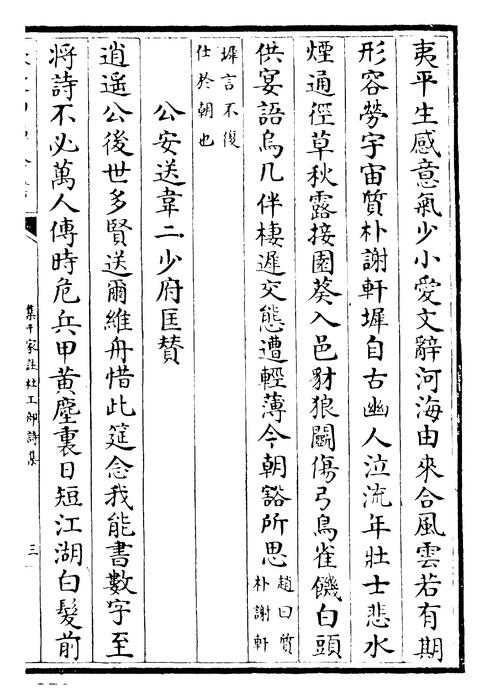 夷平生感意氣少小愛文辭河海由來合風雲若有期
形容勞宇宙質朴謝軒墀自古幽人泣流年壯士悲水
煙通徑草秋露接園葵入邑豺狼鬭傷弓鳥雀饑白頭
供宴語烏几伴棲遲交態遭輕薄今朝豁所思
趙曰質
朴謝軒
墀言不復
仕於朝也
公安送韋二少府匡贊
逍遙公後世多賢送爾維舟惜此筵念我能書數字至
將詩不必萬人傳時危兵甲黃塵裏日短江湖白髮前
集千家註杜工部詩集
三